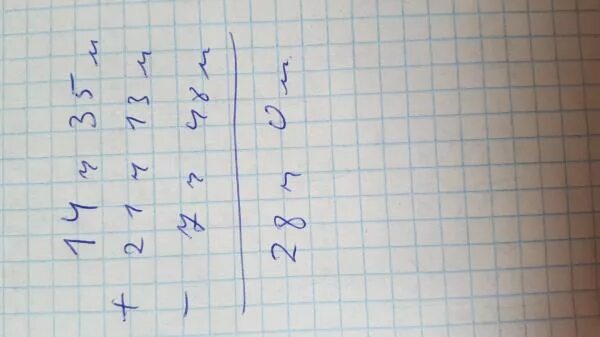 14 ч 35 м
+ 21 ч 13 м
- 7 ч 48 м
28 ч 0 м